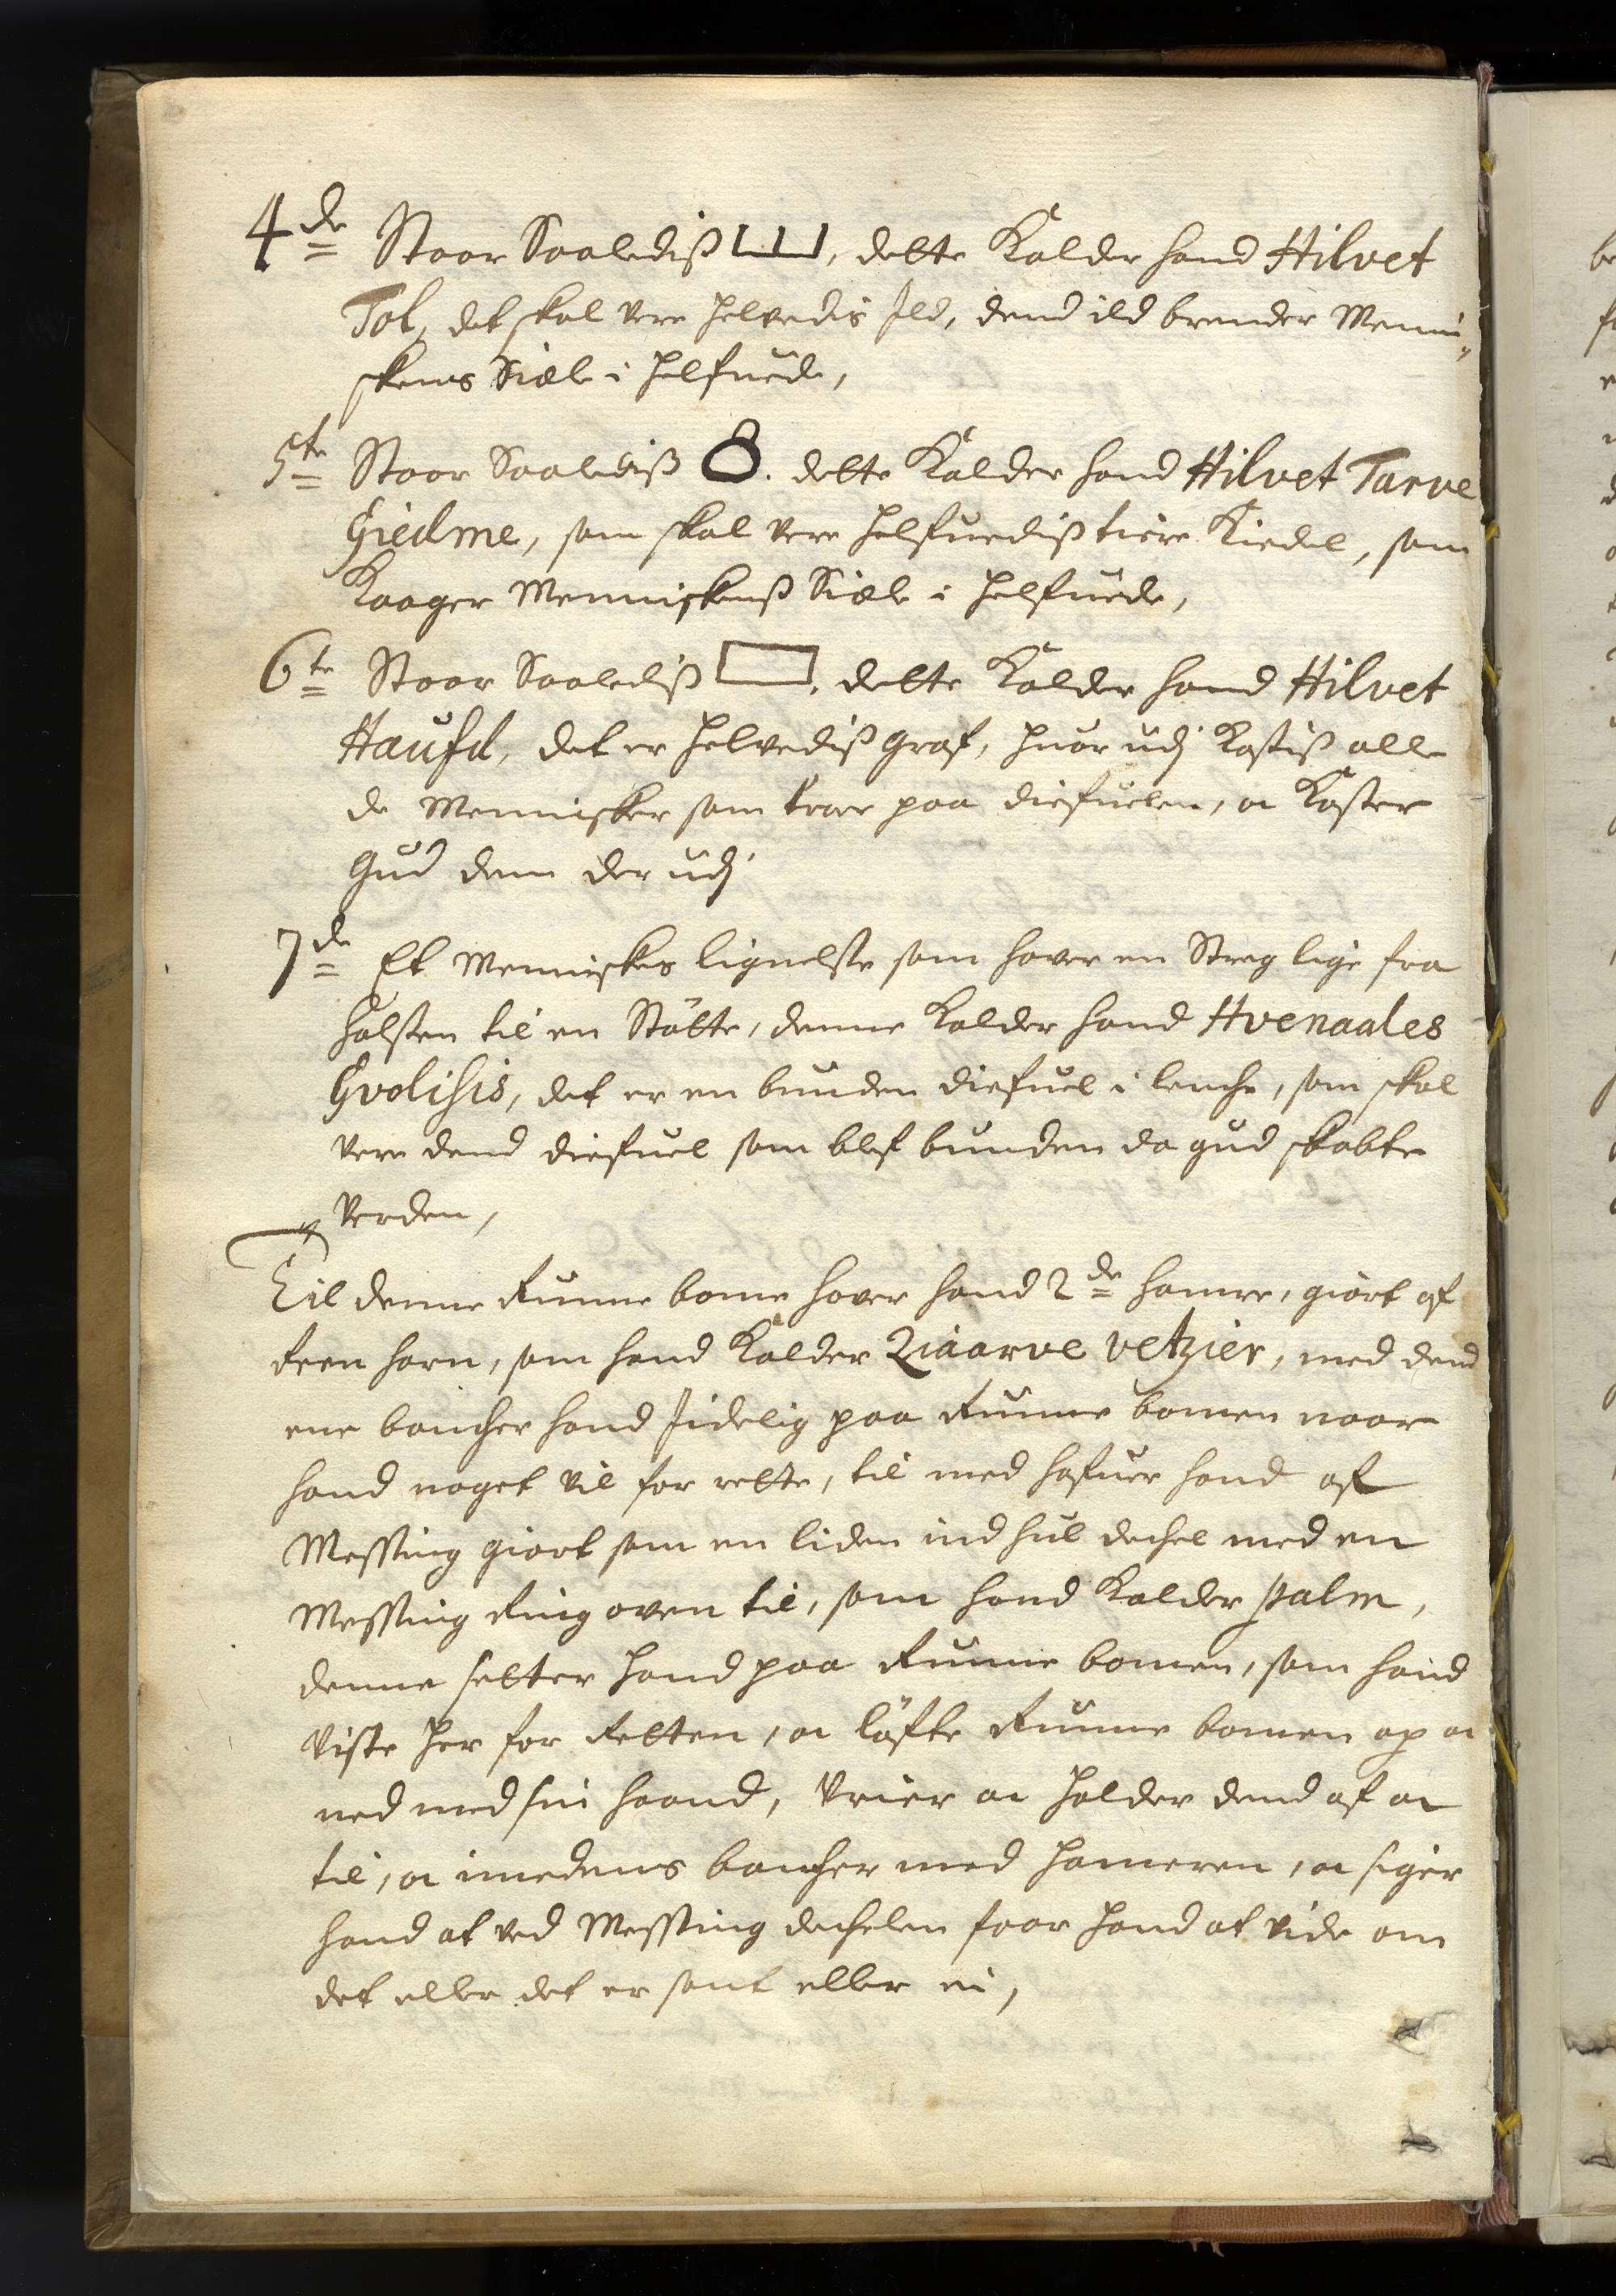 4de Staar Saalediß, dette Kalder hand Hilvet
Tol, det skal vere Helvedis Ild, dend ild brender Menni„
skens Siæle i Helfuede,
5te Staar Saalediß 8. dette Kalder hand Hilvet Tarve
Giedme, som skal vere Helfuediß tiere Kiedel, som
Kaager Menniskenß Siæle i Helfuede,
6te Staar Saalediß, dette Kalder hand Hilvet
Haufd, det er Helvediß graf, huor udj Kastiß alle
de Mennisker som troer paa diefuelen, oc Kaster
Gud dem der udj
7de Et Menniskes lignelse som haver en Streg lige fra
halsen til en Støtte, denne Kalder hand Hvenaales
Gvolisis, det er en bunden diefuel i lencke, som skal
vere dend diefuel som blef bunden da gud skabte
Verden,
Til denne Runne bome haver hand 2de hamre, giort af
Reen horn, som hand Kalder Ziaarve vetzier, med dend
ene bancker hand sidelig paa Runne bomen naar
hand noget vil for rette, til med hafuer hand af
Messing giort som en liden ind hul deckel med en
Messing Ring oven til, som hand Kalder palm,
denne setter hand paa Runne bomen, som hand
viste her for Retten, oc løfte Runne bomen op oc
ned med sin haand, vrier oc holder dend af oc
til, oc imedens bancker med hameren, oc siger
hand at ved Messing deckelen faar hand at vide om
det eller det er sant eller ei,